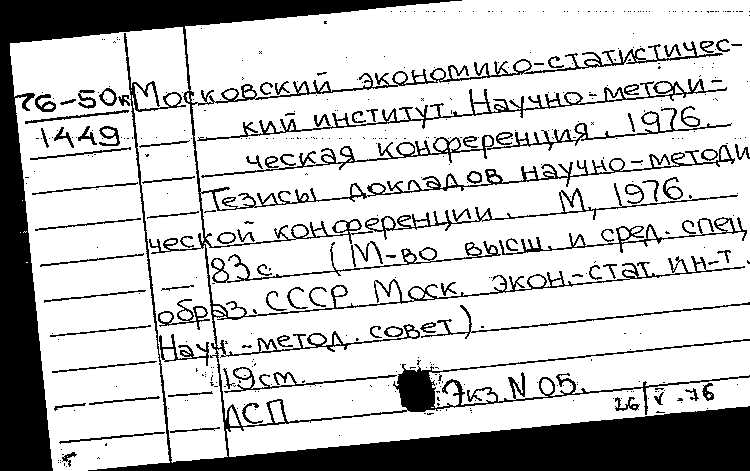 76-50к Московский экономико-статистичес-
1449 кий институт. Научно-методи-
ческая конференция. 1976.
Тезисы докладов научно-методи
ческой конференции. М, 1976.
83с. (М-во высш. и сред. спец
образ. СССР. Моск. экон.-стат. ин-т.
Науч.-метод. совет).
19cm.
ДСП Экз. N 05.
26/V-76